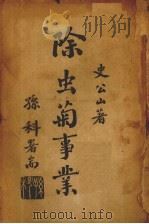 史公山著
除虫菊事業
孫科署耑